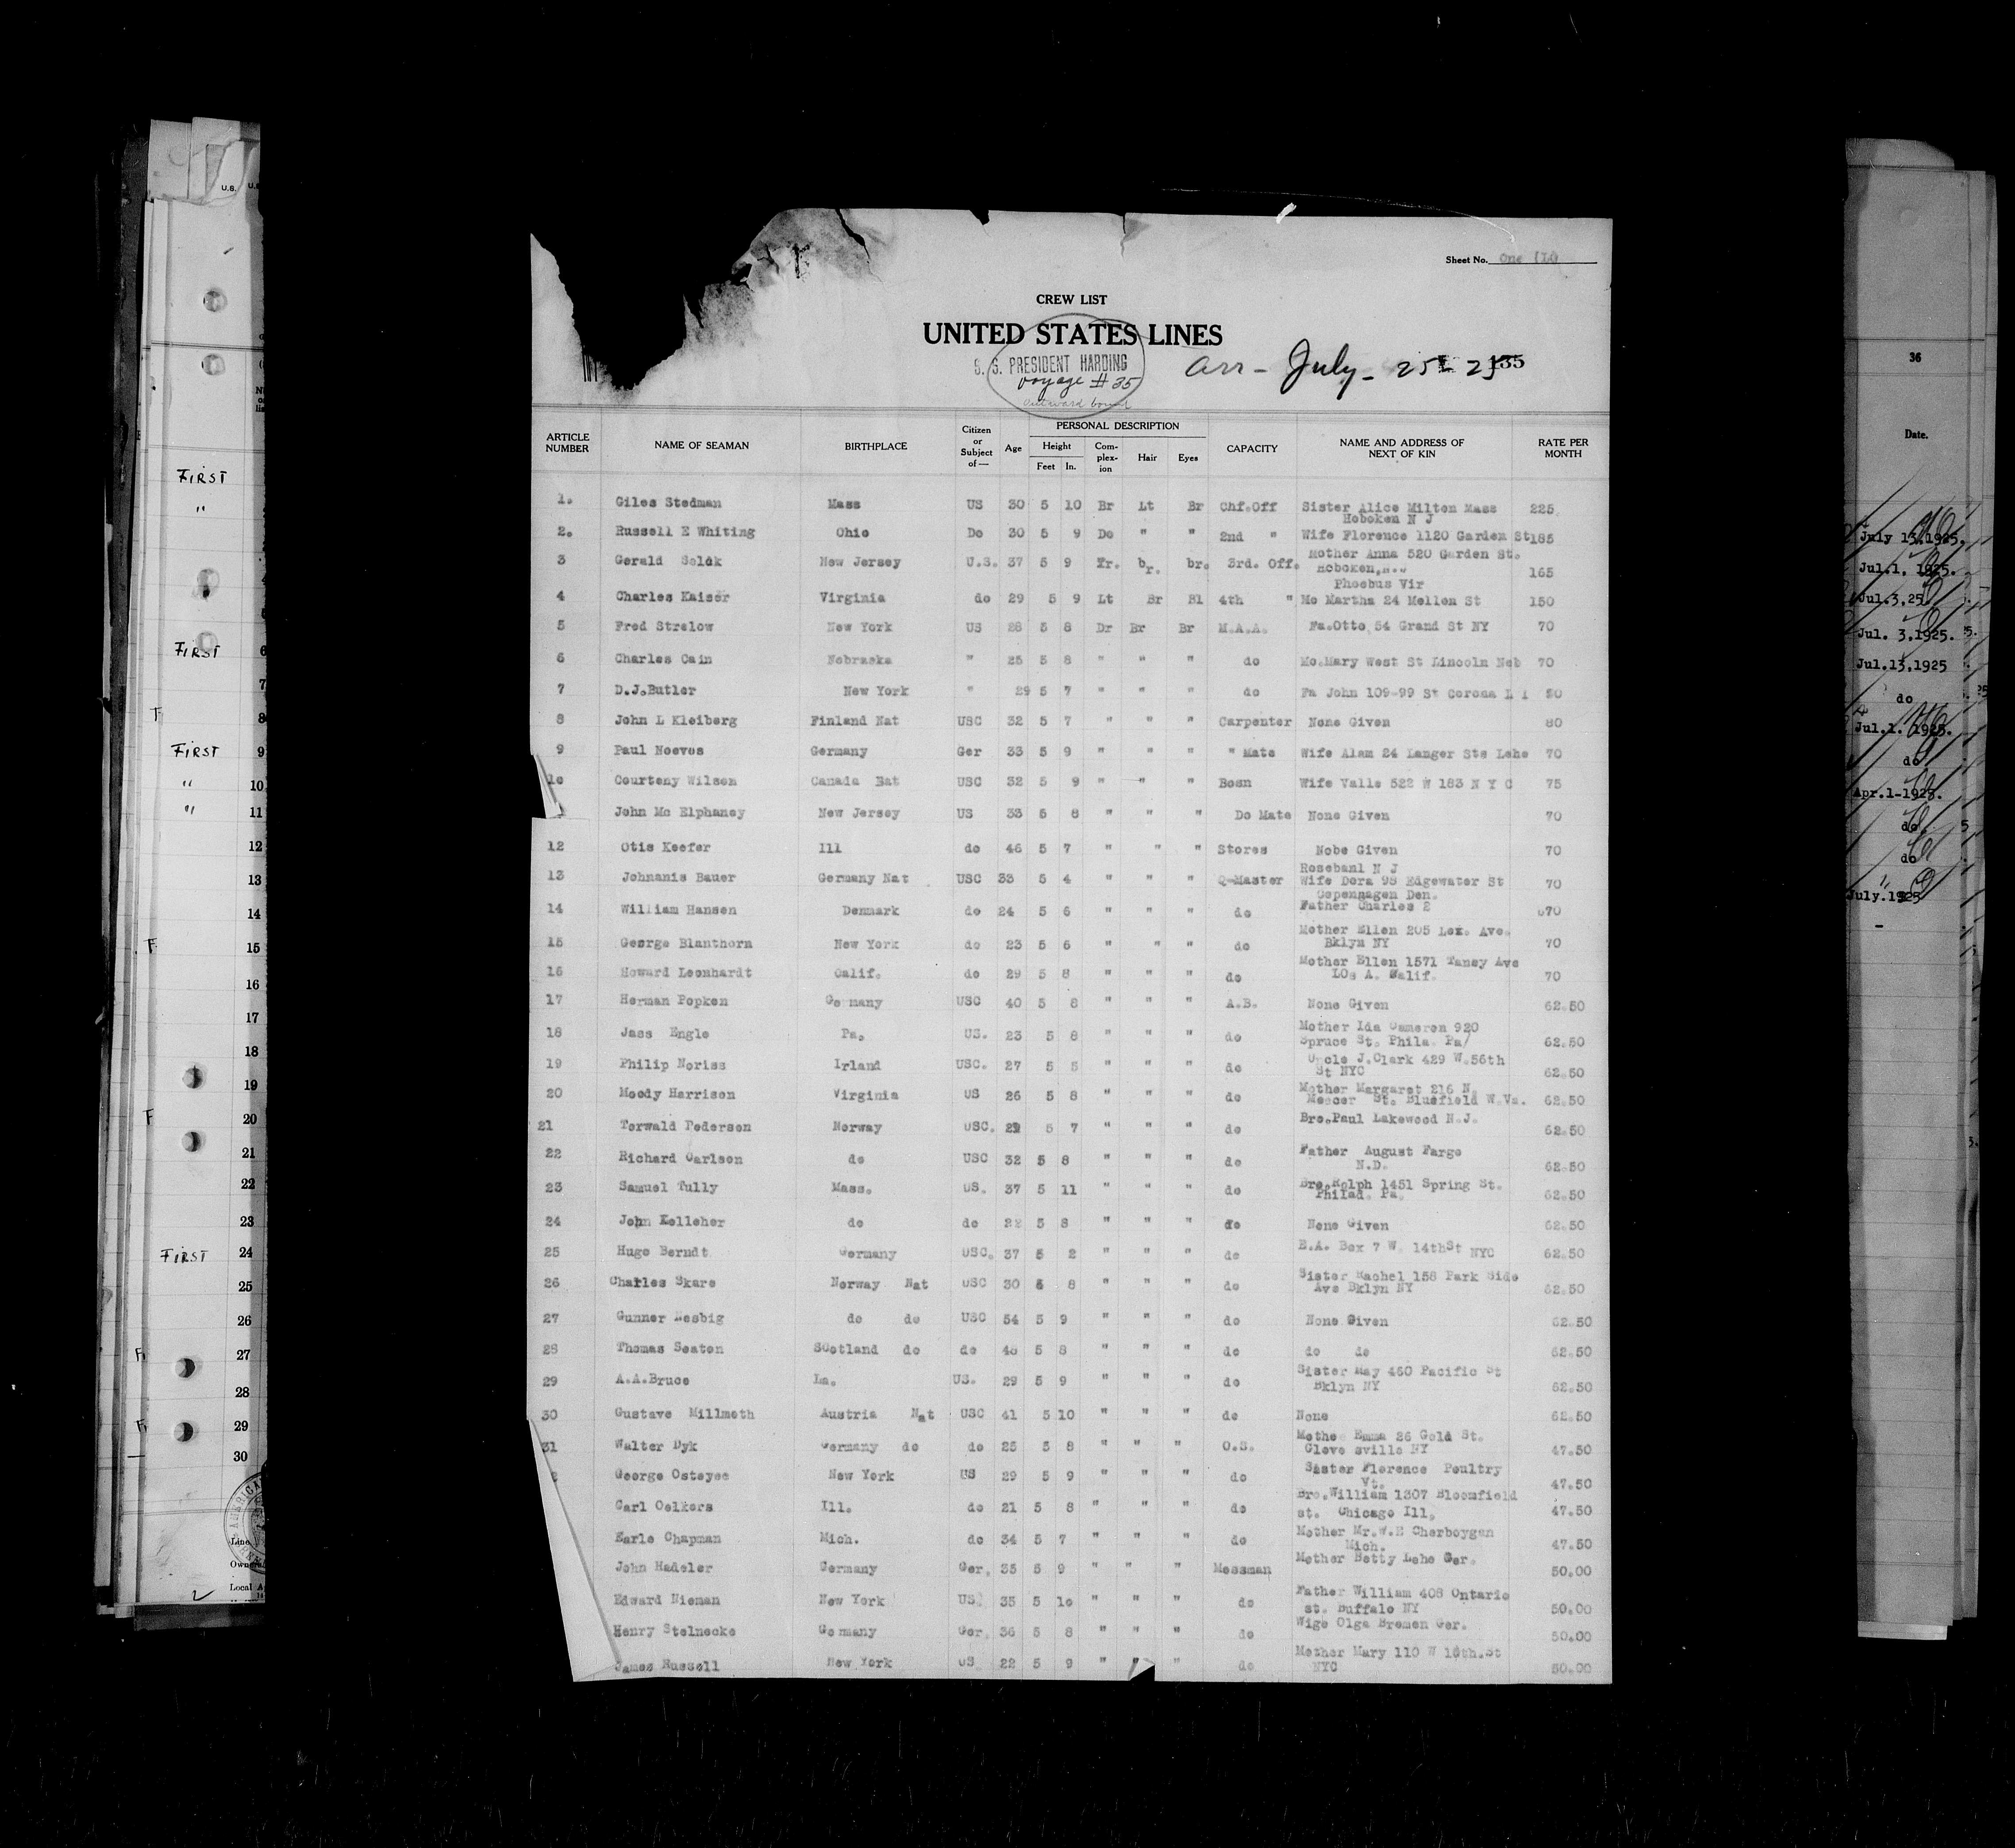 Sheet No. One (1)
CREW LIST
UNITED STATES LINES
S. S. PRESIDENT HARDING
voyage # 35
outward bound
arr - July - 25 - 25
135
ARTICLE NUMBER NAME OF SEAMAN BIRTHPLACE Citizen or Subject of — Age PERSONAL DESCRIPTION Height Feet In. Com-plex-ion Hair Eyes CAPACITY NAME AND ADDRESS OF NEXT OF KIN RATE PER MONTH
1. Giles Stedman Mass US 30 5 10 Br Lt Br Chf.Off Sister Alice Milton Mass 225
Hoboken N J
2. Russell E Whiting Ohio Do 30 5 9 Do " " 2nd " Wife Florence 1120 Garden St 185
3 Gerald U.S. 37 5 9 br. br. 3rd. Off. Mother Anna 520 Garden St. Hoboken, 165
New Jersey
Phoebus Vir
4 Charles Kaiser Virginia do 29 5 9 Lt Br Bl 4th " Mo Martha 24 Mellen St 150
5 Fred Strelow New York US 28 5 8 Dr Br Br M.A.A. Fa.Otto 54 Grand St NY 70
6 Charles Cain Nebraska " 25 5 8 " " " do Mo.Mary West St Lincoln Neb 70
7 D.J.Butler New York " 29 5 7 " " " do Fa John 109-99 St Corona L I
8 John L Kleiberg Finland Nat USC 32 5 7 " " " Carpenter None Given 80
9 Paul Noeves Germany Ger 33 5 9 " " " " Mate Wife Alam 24 Langer Sts Lehe 70
10 Courteny Wilson Canada Nat USC 32 5 9 " " " Bosn Wife Valle 522 W 183 N Y C 75
John Mc Elphaney New Jersey US 33 5 8 " " " Do Mate None Given 70
12 Otis Keefer Ill do 46 5 7 " " " Stores Nobe Given 70
Rosebanl N J
13 Johnanis Bauer Germany Nat USC 33 5 4 " " " Q-Master Wife Dora 98 Edgewater St 70
Copenhagen Den.
14 William Hansen Denmark do 24 5 6 " " " do Father Charles 2 70
15 George Blanthorn New York do 23 5 6 " " " do Mother Ellen 205 Lex. Ave. Bklyn NY 70
16 Howard Leonhardt Calif. do 29 5 8 " " " do Mother Ellen 1571 Taney Ave LOs A. Calif. 70
17 Herman Popken Germany USC 40 5 8 " " " A.B. None Given 62.50
18 Jass Engle Pa. US. 23 5 8 " " " do Mother Ida Cameron 920 Spruce St. Phila. Pa/ 62.50
19 Philip Noriss Irland USC. 27 5 5 " " " do Uncle J.Clark 429 W.56th St NYC 62.50
20 Moody Harrison Virginia US 26 5 8 " " " do Mother Margaret 216 N. Meecer St. Bluefield W.Va. 62.50
21 Torwald Pederson Norway USC. 5 7 " " " do Bro.Paul Lakewood N.J. 62.50
22 Richard Carlson do USC 32 5 8 " " " do Father August Fargo N.D. 62.50
23 Samuel Tully Mass. US. 37 5 11 " " " do Bro.Rolph 1451 Spring St. Philad. Pa. 62.50
24 John Kelleher do do 22 5 8 " " " do None Given 62.50
25 Hugo Berndt Germany USC. 37 5 2 " " " do E.A. Box 7 W. 14thSt NYC 62.50
26 Charles Skare Norway Nat USC 30 5 8 " " " do Sister Rachel 158 Park Side Ave Bklyn NY 62.50
27 Gunner Nesbig do do USC 54 5 9 " " " do None Given 62.50
28 Thomas Seaton SCotland do do 48 5 8 " " " do do do 62.50
29 A.A.Bruce La. US. 29 5 9 " " " do Sister May 460 Pacific St Bklyn NY 62.50
30 Gustave Millmoth Austria Nat USC 41 5 10 " " " do None 62.50
31 Walter Dyk Germany do do 25 5 8 " " " O.S. Mothe Emma 26 Gold St. Glove sville NY 47.50
George Osteyee New York US 29 5 9 " " " do Sister Florence Poultry Vt. 47.50
Carl Oelkers Ill. do 21 5 8 " " " do Bro.William 1307 Bloomfield st. Chicago Ill. 47.50
Earle Chapman Mich. do 34 5 7 " " " do Mother Mr.W.E Cherboygan Mich. 47.50
John Hadeler Germany Ger. 35 5 9 " " " Messman Mother Betty Lehe Ger. 50.00
Edward Nieman New York US 35 5 10 " " " do Father William 408 Ontario st. Buffalo NY 50.00
Henry Stelnecke Germany Ger. 36 5 8 " " " do Wige Olga Bremen Ger. 50.00
James Russell New York US 22 5 9 " " " do Mother Mary 110 W 16th.St NYC 50.00
U.S.
FIRST
"
FIRST 6
7
8
FIRST 9
" 10
" 11
12
13
14
15
16
17
18
19
20
21
22
23
FIRST 24
25
26
27
28
29
30
Line
Local A
36
Date.
July 13.1925.
Jul.1, 1925.
Jul.3,25
Jul. 3,1925.
Jul.13,1925
do
Jul.1. 1925.
do
Apr.1-1925.
do
do
July.1925